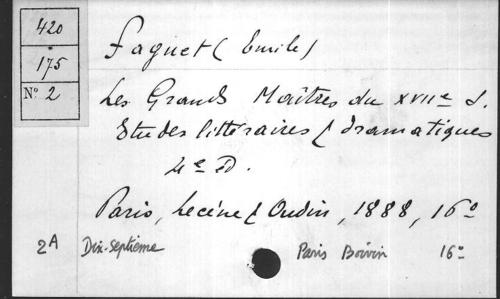 420
175
No 2
Faguet (Emile)
Les Grands Maîtres du XVIIe S.
Etudes littéraires & dramatiques
4e D.
Paris, Lecène & Oudin, 1888, 16o
2A Dix-Septième Paris Boivin 16o